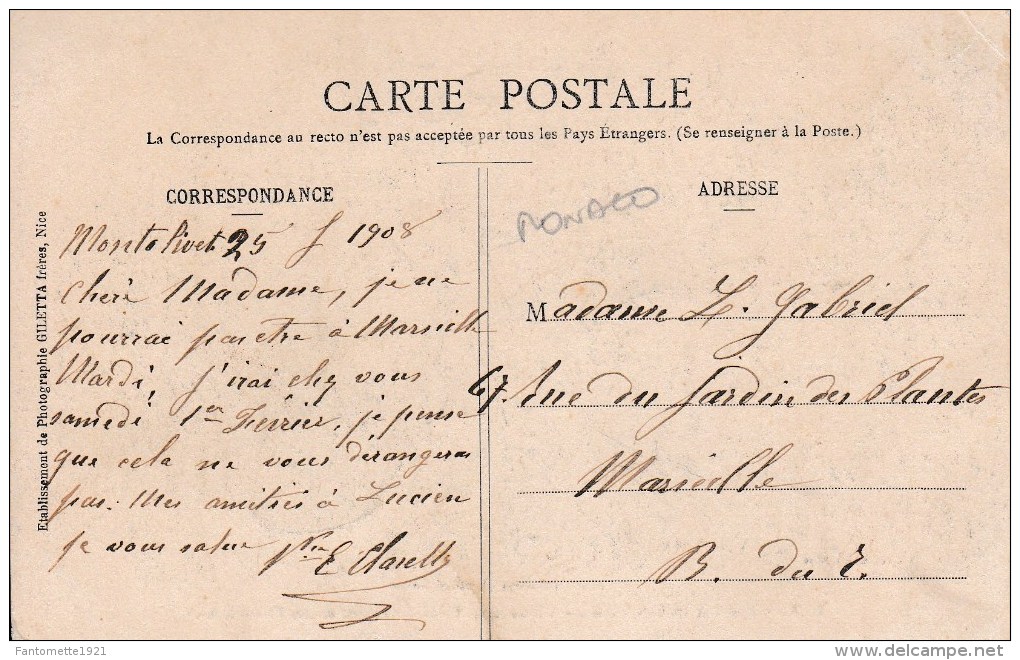 CARTE POSTALE
La Correspondance au recto n'est pas acceptée par tous les Pays Étrangers. (Se renseigner à la Poste.)
CORRESPONDANCE
Montolivet 25 J 1908
Cherè Madame, je ne
pourrai pas être à Marseille
Mardi, j'irai chez vous
samedi 1er Février, je pense
que cela ne vous dérangeras
pas. Mes amitiés à Lucien
je vous salue
MONACO
ADRESSE
Madame L. Gabriel
67 Rue du Jardin des Plantes
Marseille
B. du R.
Etablissement de Photographie GILETTA frères, Nice
Fantomette1921
delcampe.net